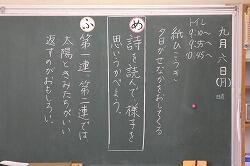 九月八日(月)
トイレ
紙ひこうき
夕日のせなかをおしてくる
め
詩を読んで様子を
思いうかべよう。
ふ
第一連、第二連では
太陽ときみたちがいい
返すのがおもしろい。